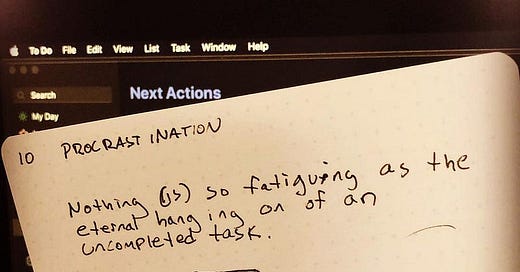 To Do File Edit View List Task Window Help
Search
Next Actions
My Day
10 PROCRASTINATION
Nothing (is) so fatiguing as the
eternal hanging on of an
uncompleted task.